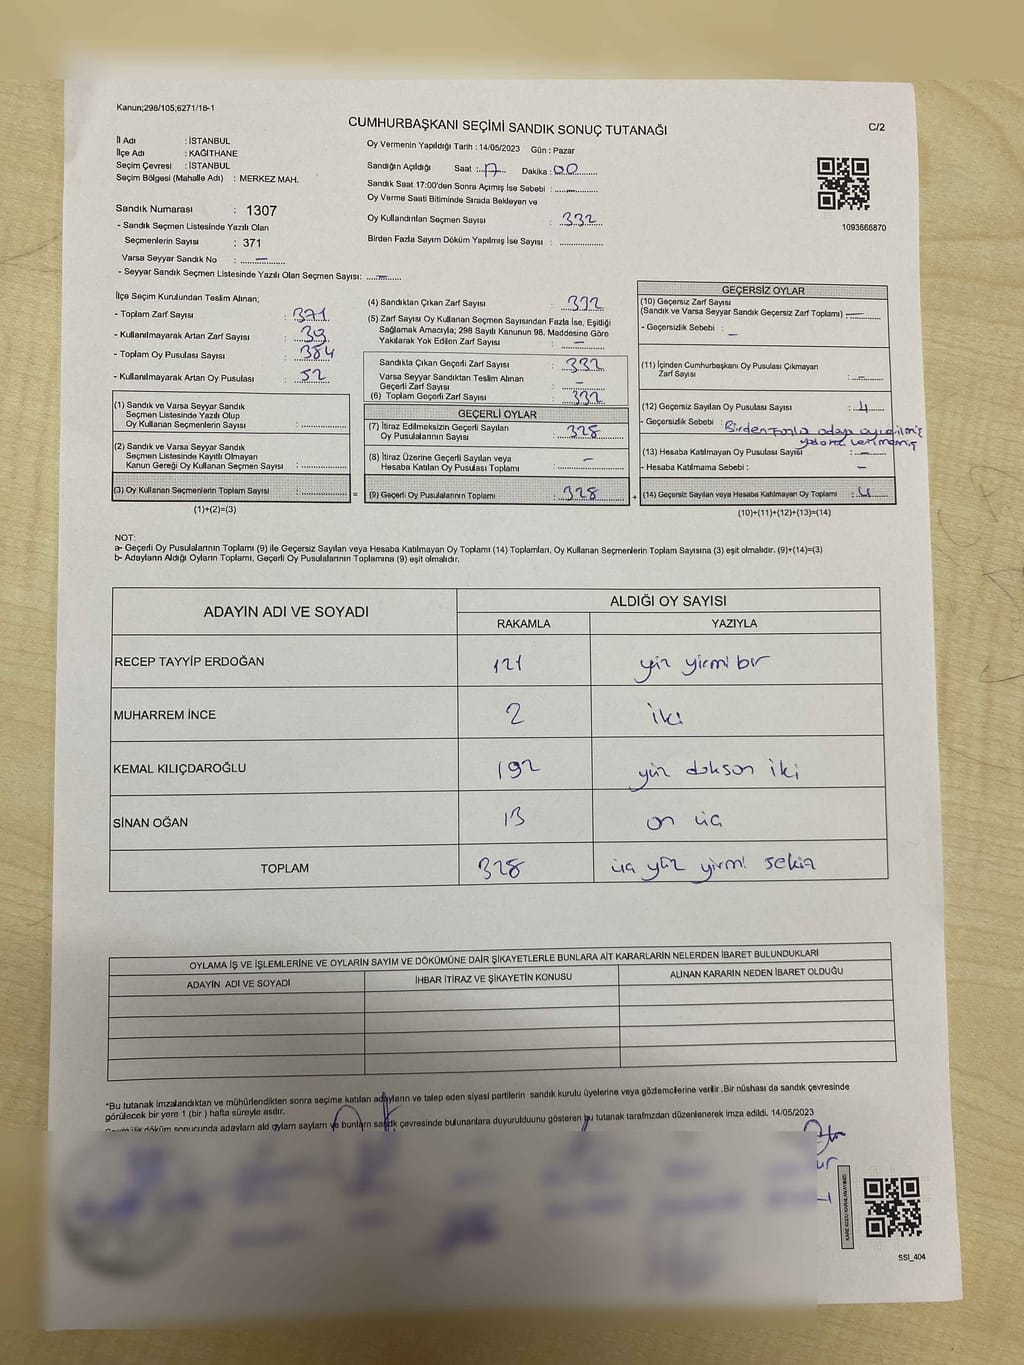 Kanun;298/105;6271/18-1
CUMHURBAŞKANI SEÇİMİ SANDIK SONUÇ TUTANAĞI
C/2
İl Adı : İSTANBUL
İlçe Adı : KAĞITHANE
Seçim Çevresi : İSTANBUL
Seçim Bölgesi (Mahalle Adı) : MERKEZ MAH.
Sandık Numarası : 1307
- Sandık Seçmen Listesinde Yazılı Olan
Seçmenlerin Sayısı : 371
Varsa Seyyar Sandık No : –
- Seyyar Sandık Seçmen Listesinde Yazılı Olan Seçmen Sayısı: –
Oy Vermenin Yapıldığı Tarih : 14/05/2023 Gün : Pazar
Sandığın Açıldığı Saat : 17 Dakika : 00
Sandık Saat 17:00'den Sonra Açımış İse Sebebi : –
Oy Verme Saati Bitiminde Sırada Bekleyen ve
Oy Kullandırılan Seçmen Sayısı : 332
Birden Fazla Sayım Döküm Yapılmış İse Sayısı :
1093666870
İlçe Seçim Kurulundan Teslim Alınan;
- Toplam Zarf Sayısı : 371
- Kullanılmayarak Artan Zarf Sayısı : 39
- Toplam Oy Pusulası Sayısı : 384
- Kullanılmayarak Artan Oy Pusulası : 52
(1) Sandık ve Varsa Seyyar Sandık
Seçmen Listesinde Yazılı Olup
Oy Kullanan Seçmenlerin Sayısı :
(2) Sandık ve Varsa Seyyar Sandık
Seçmen Listesinde Kayıtlı Olmayan
Kanun Gereği Oy Kullanan Seçmen Sayısı :
(3) Oy Kullanan Seçmenlerin Toplam Sayısı : =
(1)+(2)=(3)
(4) Sandıktan Çıkan Zarf Sayısı : 332
(5) Zarf Sayısı Oy Kullanan Seçmen Sayısından Fazla İse, Eşitliği
Sağlamak Amacıyla; 298 Sayılı Kanunun 98. Maddesine Göre
Yakılarak Yok Edilen Zarf Sayısı : –
Sandıkta Çıkan Geçerli Zarf Sayısı : 332
Varsa Seyyar Sandıktan Teslim Alınan
Geçerli Zarf Sayısı : –
(6) Toplam Geçerli Zarf Sayısı : 332
GEÇERLİ OYLAR
(7) İtiraz Edilmeksizin Geçerli Sayılan
Oy Pusulalarının Sayısı : 328
(8) İtiraz Üzerine Geçerli Sayılan veya
Hesaba Katılan Oy Pusulası Toplamı : –
(9) Geçerli Oy Pusulalarının Toplamı : 328 +
GEÇERSİZ OYLAR
(10) Geçersiz Zarf Sayısı
(Sandık ve Varsa Seyyar Sandık Geçersiz Zarf Toplamı) : –
- Geçersizlik Sebebi : –
(11) İçinden Cumhurbaşkanı Oy Pusulası Çıkmayan
Zarf Sayısı : –
(12) Geçersiz Sayılan Oy Pusulası Sayısı : 4
- Geçersizlik Sebebi : Birden fazla aday
(13) Hesaba Katılmayan Oy Pusulası Sayısı : –
- Hesaba Katılmama Sebebi : –
(14) Geçersiz Sayılan veya Hesaba Katılmayan Oy Toplamı : 4
(10)+(11)+(12)+(13)=(14)
NOT:
a- Geçerli Oy Pusulalarının Toplamı (9) ile Geçersiz Sayılan veya Hesaba Katılmayan Oy Toplamı (14) Toplamları, Oy Kullanan Seçmenlerin Toplam Sayısına (3) eşit olmalıdır. (9)+(14)=(3)
b- Adayların Aldığı Oyların Toplamı, Geçerli Oy Pusulalarının Toplamına (9) eşit olmalıdır.
ADAYIN ADI VE SOYADI
ALDIĞI OY SAYISI
RAKAMLA YAZIYLA
RECEP TAYYİP ERDOĞAN 121 yüz yirmi bir
MUHARREM İNCE 2 iki
KEMAL KILIÇDAROĞLU 192 yüz doksan iki
SİNAN OĞAN 13 on üç
TOPLAM 328 üç yüz yirmi sekiz
OYLAMA İŞ VE İŞLEMLERİNE VE OYLARIN SAYIM VE DÖKÜMÜNE DAİR ŞİKAYETLERLE BUNLARA AİT KARARLARIN NELERDEN İBARET BULUNDUKLARI
ADAYIN ADI VE SOYADI İHBAR İTİRAZ VE ŞİKAYETİN KONUSU ALINAN KARARIN NEDEN İBARET OLDUĞU
*Bu tutanak imzalandıktan ve mühürlendikten sonra seçime katılan adayların ve talep eden siyasi partilerin sandık kurulu üyelerine veya gözlemcilerine verilir .Bir nüshası da sandık çevresinde
görülecek bir yere 1 (bir ) hafta süreyle asılır.
döküm sonucunda ve bunların sandık çevresinde bulunanlara duyurulduunu gösteren bu tutanak tarafımızdan düzenlenerek imza edildi. 14/05/2023
SSI_404